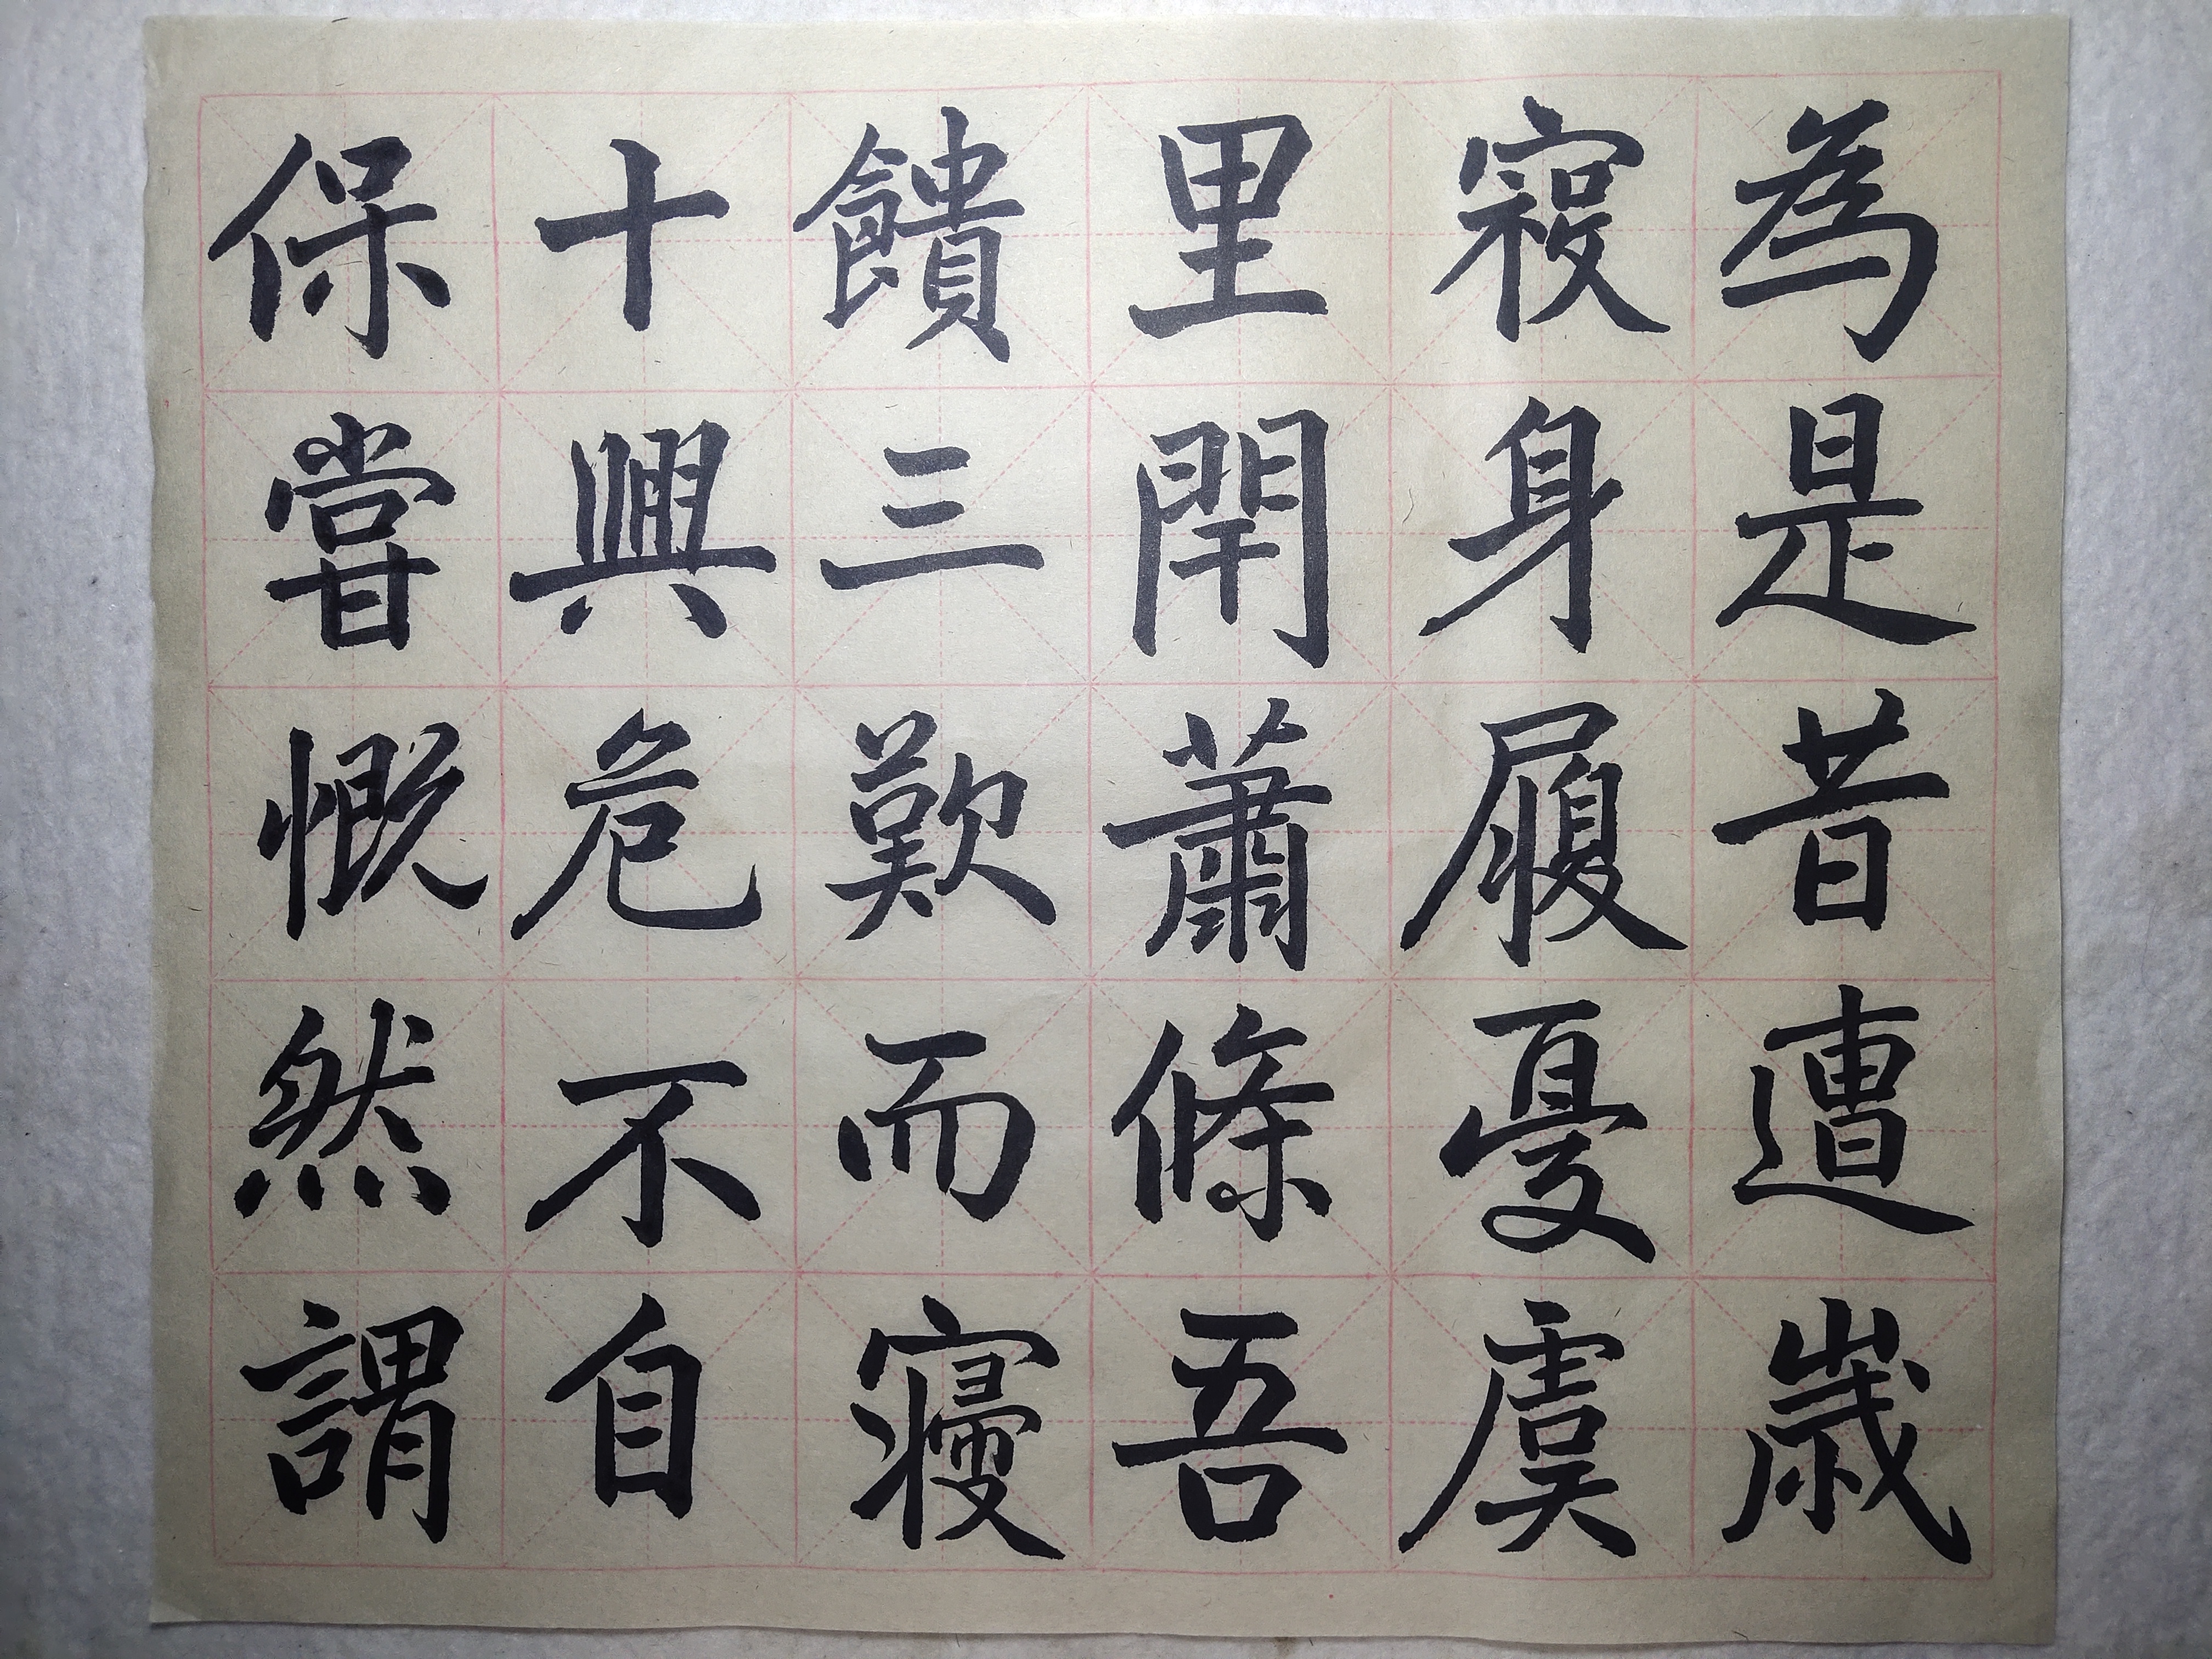 為是昔遭歲
身履憂虞
里閈蕭條吾
饋三歎而寢
十興危不自
保甞慨然謂